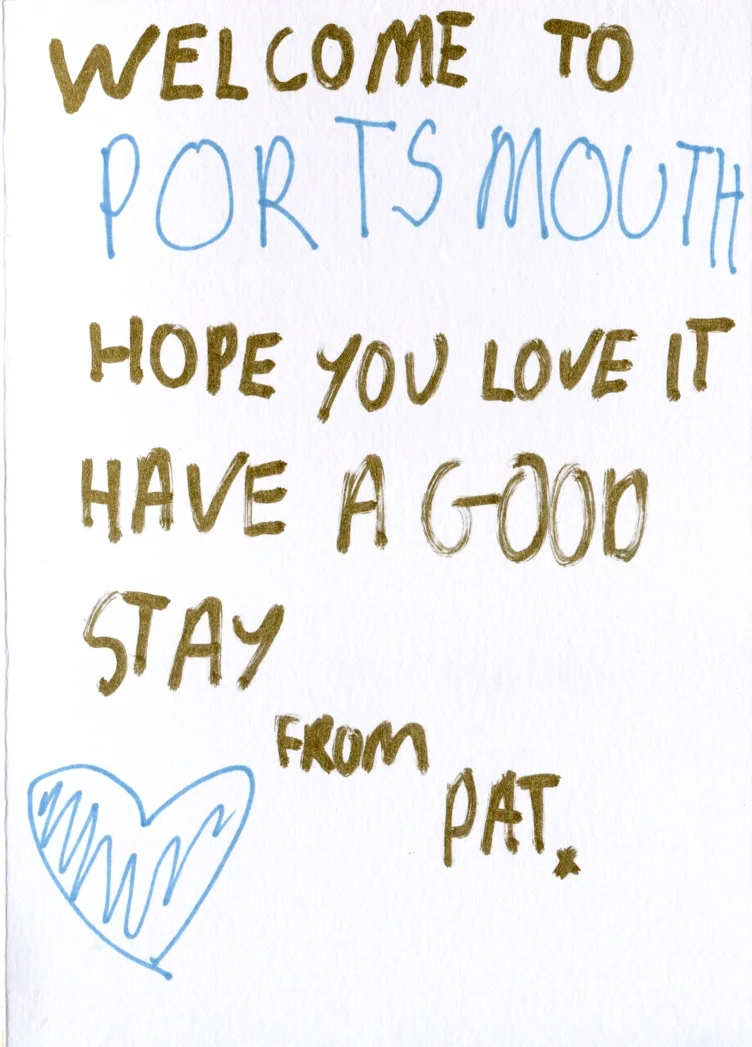 WELCOME TO
PORTSMOUTH
HOPE YOU LOVE IT
HAVE A GOOD
STAY
FROM
PAT. x